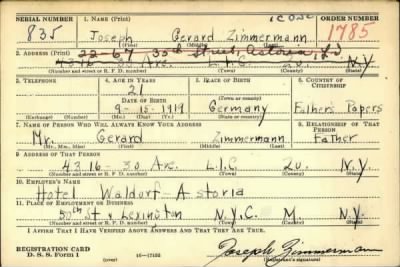 SERIAL NUMBER 1. NAME (Print) ORDER NUMBER
835 Joseph Gerard Zimmermann 1785
(First) (Middle) (Last)
2. ADDRESS (Print) 22-64 35th Street, Astoria, L.I.
43-16 30 Ave. L.I.C. Qu. N.Y.
(Number and street or R. F. D. number) (Town) (County) (State)
3. TELEPHONE 4. AGE IN YEARS 5. PLACE OF BIRTH 6. COUNTRY OF CITIZENSHIP
21
DATE OF BIRTH (Town or county)
9-15-1919 Germany Father's Papers
(Exchange) (Number) (Mo.) (Day) (Yr.) (State or country)
7. NAME OF PERSON WHO WILL ALWAYS KNOW YOUR ADDRESS 8. RELATIONSHIP OF THAT PERSON
Mr. Gerard Zimmermann Father
(Mr., Mrs., Miss) (First) (Middle) (Last)
9. ADDRESS OF THAT PERSON
43-16 30 Ave. L.I.C. Qu. N.Y.
(Number and street or R. F. D. number) (Town) (County) (State)
10. EMPLOYER'S NAME
Hotel Waldorf Astoria
11. PLACE OF EMPLOYMENT OR BUSINESS
50th St & Lexington N.Y.C. M. N.Y.
(Number and street or R. F. D. number) (Town) (County) (State)
I AFFIRM THAT I HAVE VERIFIED ABOVE ANSWERS AND THAT THEY ARE TRUE.
REGISTRATION CARD
D. S. S. Form 1 (over) 16-17105 Joseph Zimmermann
(Registrant's signature)